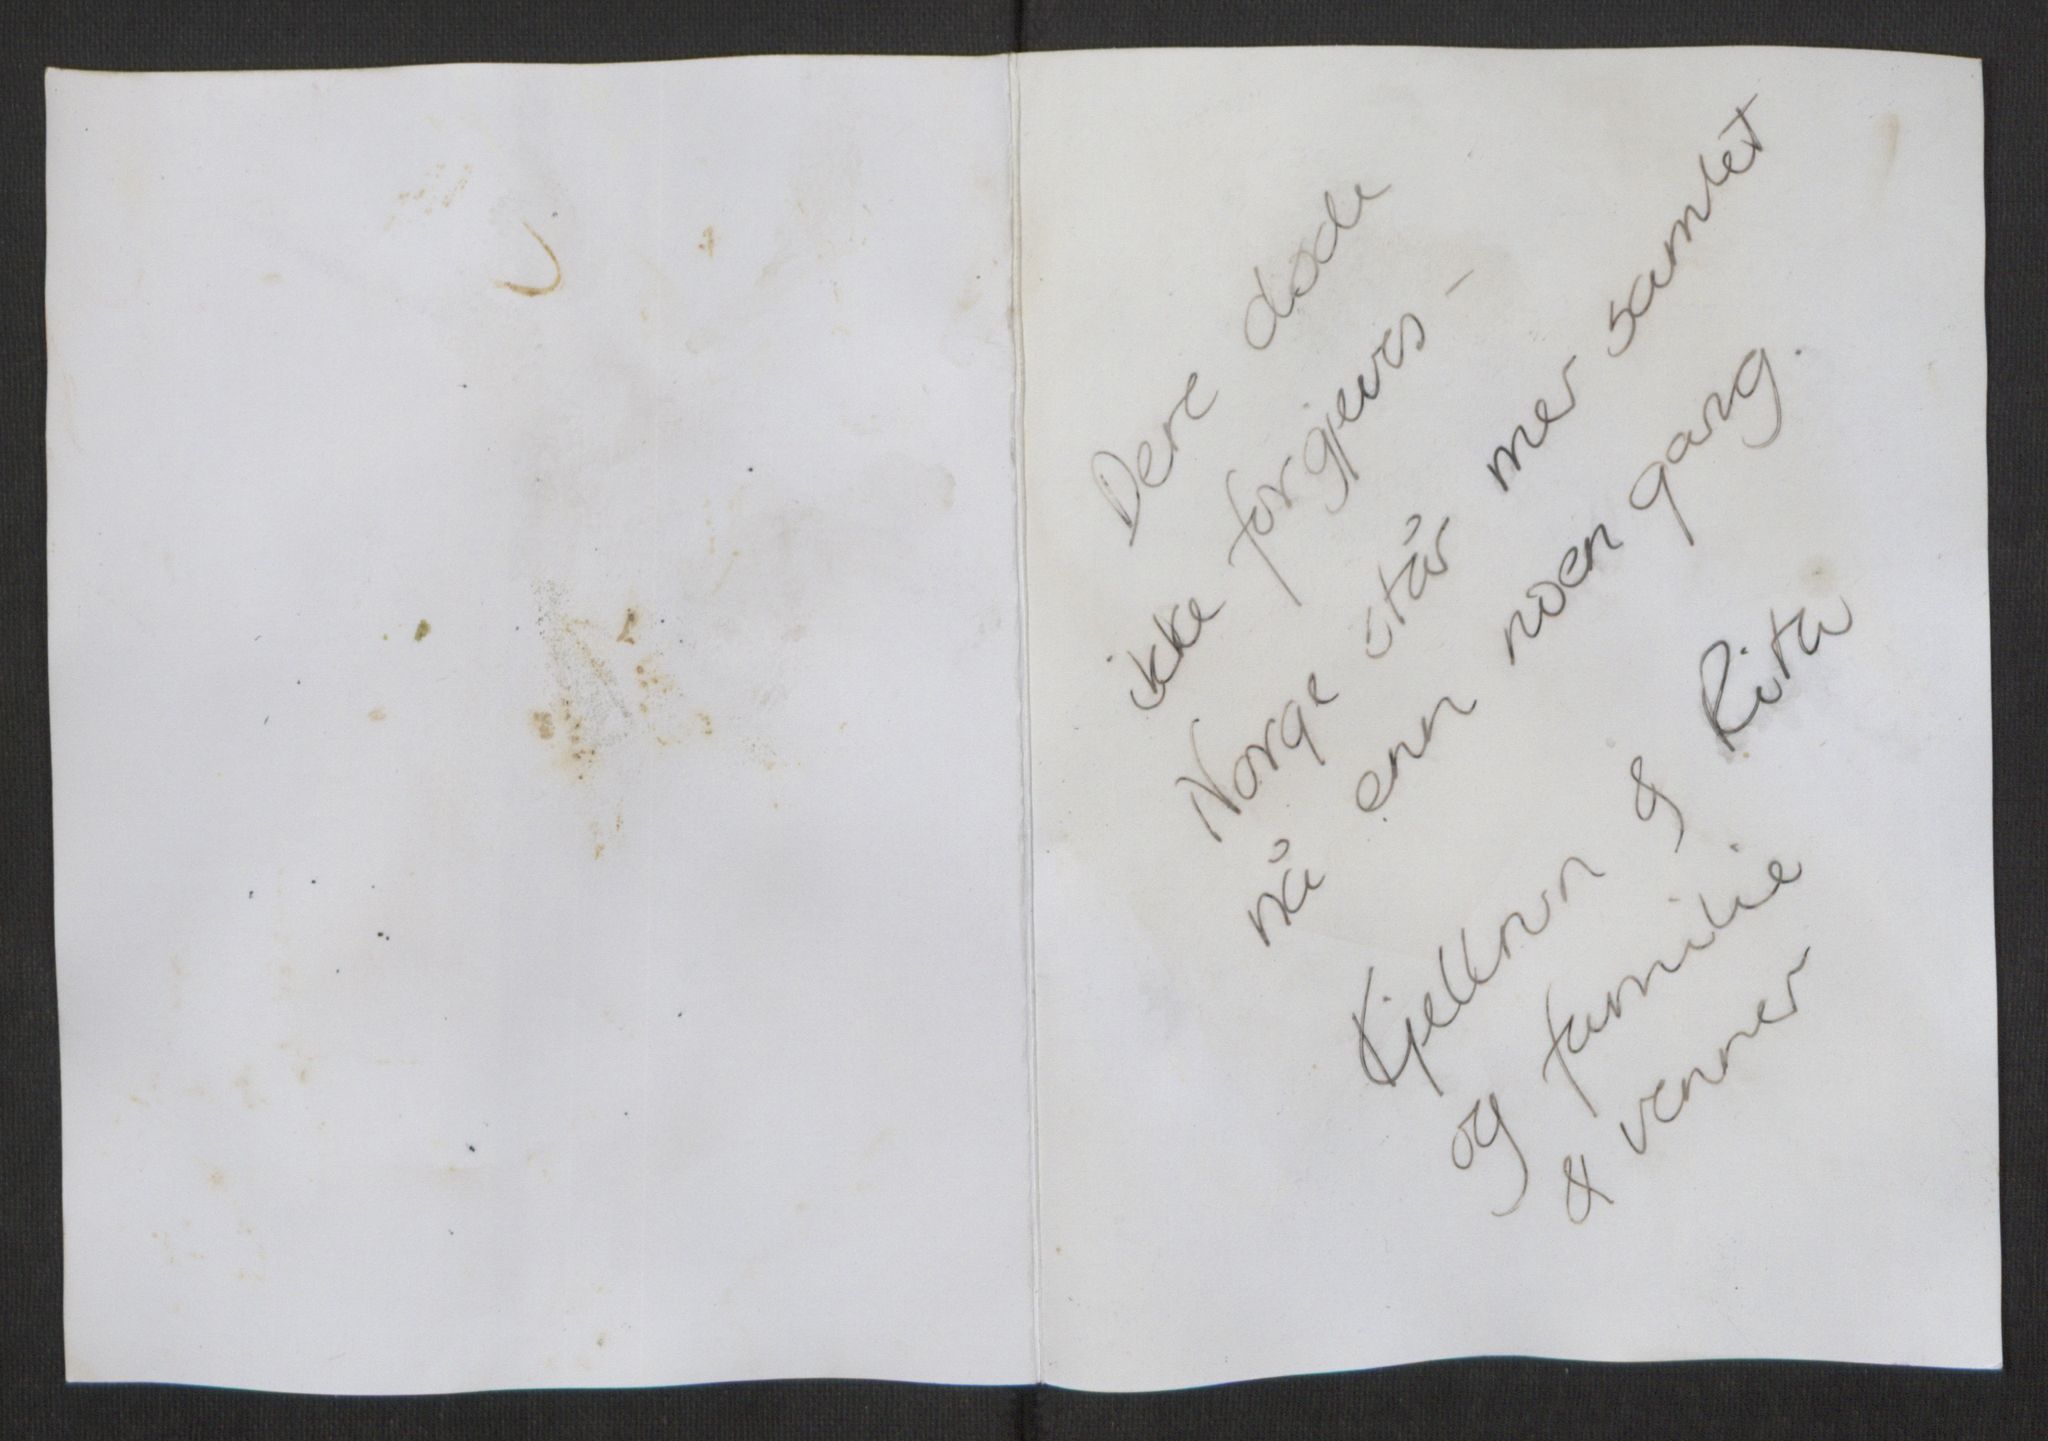 Dere døde
ikke forgjeves -
Norge står mer samlet
nå enn noen gang.
Kjellrun & Rita
og familie
& venner